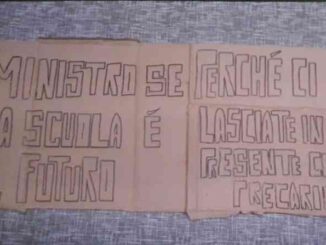 MINISTRO SE
A SCUOLA É
FUTURO
PERCHÉ CI
LASCIATE IN
PRESENTE C
PRECARI